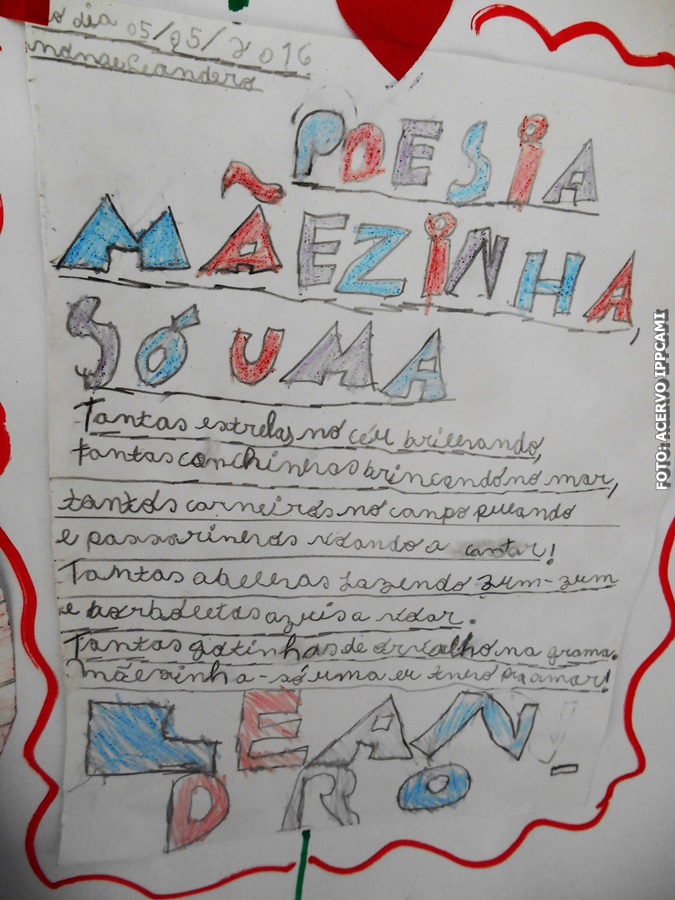 dia 05/05/2016
Leandro
POESIA
MÃEZINHA,
SÓ UMA
Tantas estrelas no céu brilhando,
tantas conchinhas brincando no mar,
tantos carneiros no campo pulando
e passarinhos voando a cantar!
Tantas abelhas fazendo zum-zum
e borboletas azuis a voar.
Tantas gotinhas de orvalho na grama.
mãezinha - só uma eu tenho pra amar!
LEAN_
DRO
FOTO: ACERVO IPPCAMI